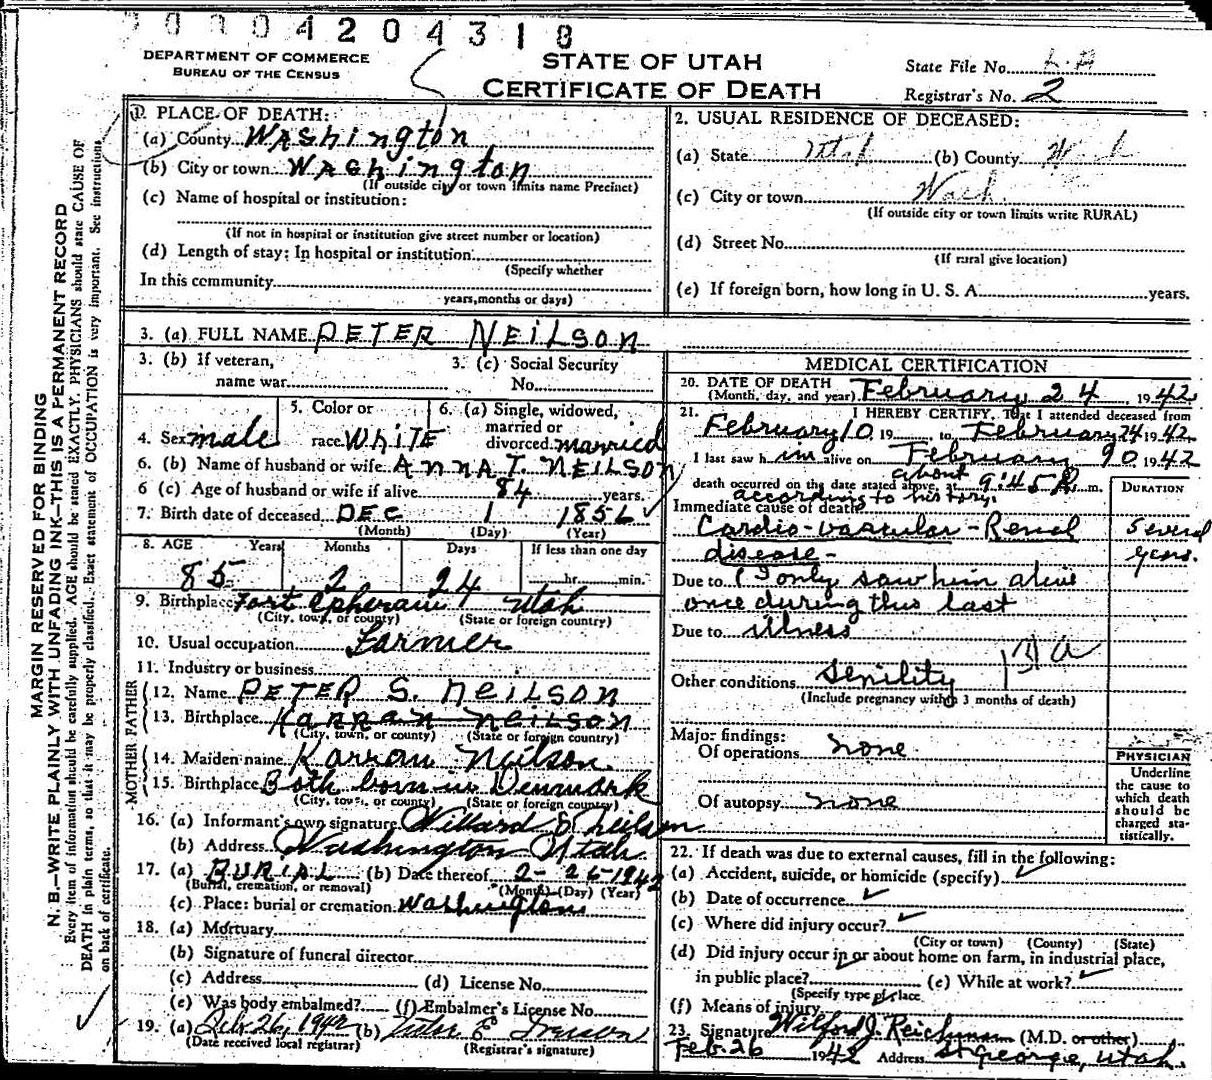 4204318
DEPARTMENT OF COMMERCE
BUREAU OF THE CENSUS
STATE OF UTAH
CERTIFICATE OF DEATH
State File No.
Registrar's No. 2
MARGIN RESERVED FOR BINDING
N. B.—WRITE PLAINLY WITH UNFADING INK—THIS IS A PERMANENT RECORD
Every item of information should be carefully supplied. AGE should be stated EXACTLY. PHYSICIANS should state CAUSE OF
DEATH in plain terms, so that it may be properly classified. Exact statement of OCCUPATION is very important. See instructions
on back of certificate.
1. PLACE OF DEATH:
(a) County Washington
(b) City or town Washington
(If outside city or town limits name Precinct)
(c) Name of hospital or institution:
(If not in hospital or institution give street number or location)
(d) Length of stay: In hospital or institution
(Specify whether
In this community
years, months or days)
2. USUAL RESIDENCE OF DECEASED:
(a) State Utah (b) County Wash
(c) City or town Wash.
(If outside city or town limits write RURAL)
(d) Street No.
(If rural give location)
(e) If foreign born, how long in U. S. A. years.
3. (a) FULL NAME PETER NEILSON
3. (b) If veteran,
name war
3. (c) Social Security
No.
4. Sex male
5. Color or
race White
6. (a) Single, widowed,
married or
divorced married
6. (b) Name of husband or wife ANNA T. NEILSON
6 (c) Age of husband or wife if alive 84 years.
7. Birth date of deceased DEC 1 1856
(Month) (Day) (Year)
8. AGE Years Months Days If less than one day
85 2 24 hr. min.
9. Birthplace Fort Epheraim Utah
(City, town, or county) (State or foreign country)
10. Usual occupation Farmer
11. Industry or business
FATHER
12. Name PETER S. NEILSON
13. Birthplace Karran Neilson
(City, town, or county) (State or foreign country)
MOTHER
14. Maiden name Karran Neilson.
15. Birthplace Both born in Denmark
(City, town, or county) (State or foreign country)
16. (a) Informant's own signature Willard S Neilson
(b) Address Washington Utah
17. (a) BURIAL (b) Date thereof 2-26-1942
(Burial, cremation, or removal) (Month) (Day) (Year)
(c) Place: burial or cremation Washington
18. (a) Mortuary
(b) Signature of funeral director
(c) Address (d) License No.
(e) Was body embalmed? (f) Embalmer's License No.
19. (a) Feb 26, 1942 (b) Iverson
(Date received local registrar) (Registrar's signature)
MEDICAL CERTIFICATION
20. DATE OF DEATH
(Month, day, and year) February 24, 1942
21. I HEREBY CERTIFY, That I attended deceased from
February 10 19 to February 24 1942
I last saw him alive on February 1942
about
death occurred on the date stated above, at 9:45 P. m.
according to history
Immediate cause of death
Cardio-vascular-Renal
disease-
DURATION
Several
years.
Due to (I only saw him alive
once during this last
Due to illness
131 a
Other conditions Senility
(Include pregnancy within 3 months of death)
Major findings:
Of operations none
Of autopsy none
PHYSICIAN
Underline
the cause to
which death
should be
charged sta-
tistically.
22. If death was due to external causes, fill in the following:
(a) Accident, suicide, or homicide (specify) ✓
(b) Date of occurrence ✓
(c) Where did injury occur? ✓
(City or town) (County) (State)
(d) Did injury occur in or about home on farm, in industrial place,
in public place? (e) While at work? ✓
(Specify type of place
(f) Means of injury
23. Signature Wilford J. Reichmann (M.D. or other)
Feb. 26 1942 Address St George, Utah.